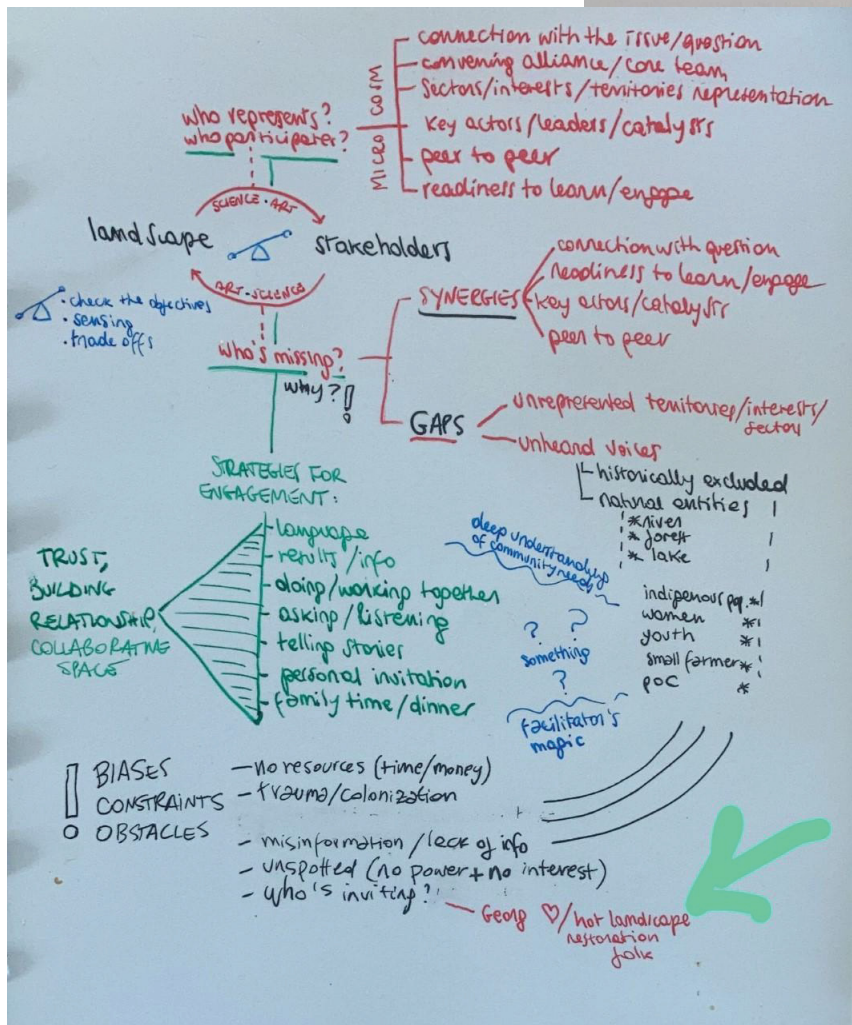 connection with the issue/question
convening alliance/core team
sectors/interests/territories representation
key actors/leaders/catalysts
peer to peer
readiness to learn/engage
MICRO COSM
who represents?
who participates?
SCIENCE · ART
landscape
stakeholders
ART · SCIENCE
· check the objectives
· sensing
· trade offs
who's missing?
why?!
SYNERGIES
connection with question
readiness to learn/engage
key actors/catalysts
peer to peer
GAPS
unrepresented territories/interests/
sectors
unheard voices
historically excluded
natural entities
* river
* forest
* lake
indigenous pop. *
women *
youth *
small farmer *
POC *
STRATEGIES FOR
ENGAGEMENT:
- language
- results/info
- doing/working together
- asking/listening
- telling stories
- personal invitation
- family time/dinner
TRUST,
BUILDING
RELATIONSHIP,
COLLABORATIVE
SPACE
deep understanding
of community needs
? ?
something
?
facilitator's
magic
! BIASES
CONSTRAINTS
OBSTACLES
- no resources (time/money)
- trauma/colonization
- misinformation/lack of info
- unspotted (no power + no interest)
- who's inviting?
- Georg ♡/hot landscape
restoration
folk